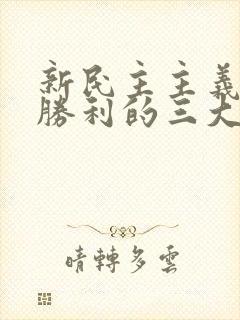 新民主主義
勝利的三大
晴轉多雲